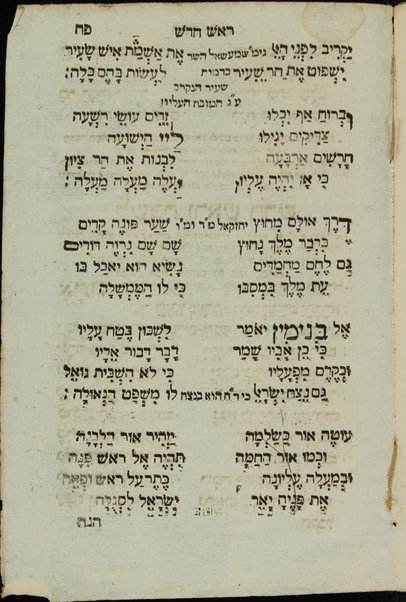 ראש חדש פח
יַקְרִיב לִפְנֵי הָאֵל גימ"ש שמעשאל השר אֶת אַשְׁמַת אִישׁ שָׂעִיר
יִשְׁפּוֹט אֶת הַר שֵׂעִיר כדמות לַעְשׂוֹת בָּהֶם כָּלָה:
שעיר הנקרב
ע"ג חמובח העליון
וּבְרוּחַ אַף יִכְלוּ זֵדִים עוֹשֵׂי רִשְׁעָה
צַדִּיקִים יָגִילוּ לַיְיָ הַיְשׁוּעָה
חָרָשִׁים אַרְבָּעָה לִבְנוֹת אֶת הַר צִיּוֹן
כִּי אָז יִהְיֶה עֶלְיוֹן יַעֲלֶה מַעְלָה מַעְלָה:
דֶּרֶךְ אוּלָם מִחוּץ יחזקאל מ"ד ומ"ו שַׁעַר פּוֹנֶה קָדִים
כִּדְבַר מֶלֶךְ נָחוּץ שָׁם שָׁם נִרְוֶה דוֹדִים
גַּם לֶחֶם חֲמֻדִים נָשִׂיא הוּא יֹאכַל בּוֹ
עֵת מֶלֶךְ בִּמְסִבּוֹ כִּי לוֹ הַמֶּמְשָׁלָה
אֶל בִּנְיָמִין יֹאמַר לִשְׁכּוֹן בֶּטַח עָלָיו
כִּי בֵן אָבִיו שָׁמַר דָּבָר דָּבוּר אֵלָיו
וּבְקֶדֶם מִפְעָלָיו כִּי לֹא הִשְׁבִּית גּוֹאֵל
גַּם נֵצַח יִשְׂרָאֵל כי ר"ח הוא בנצח לוֹ מִשְׁפַּט הַגְּאוּלָּה:
עוֹטֶה אוֹר כַּשַּׂלְמָה יַזְהִיר אוֹר הַלְּבָנָה
וּכְמוֹ אוֹר הַחַמָּה תִּהְיֶה אֶל רֹאשׁ פִּנָּה
וּבְמַעֲלָה עֶלְיוֹנָה כֶּתֶר עַל רֹאשׁ
אֶת פָּנֶיהָ יָאֵר יִשְׂרָאֵל לִסְגֻלָּה
הנה